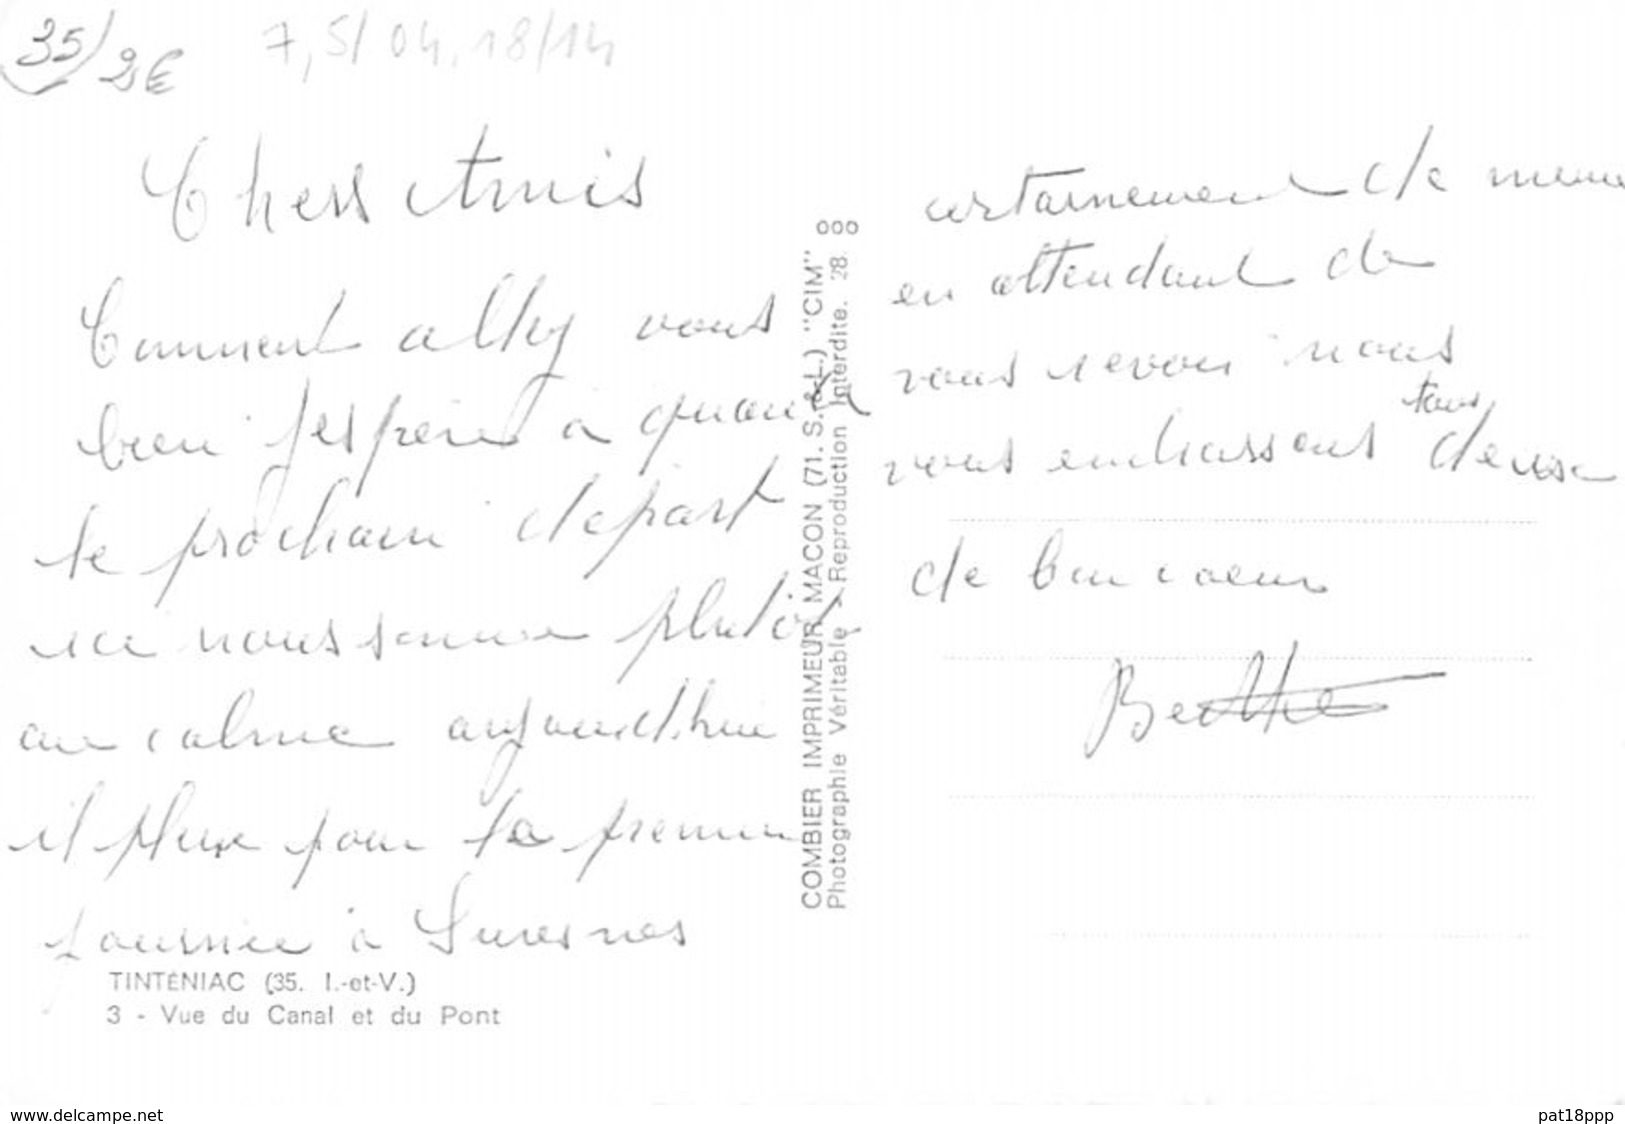 35/ 2€ 7,5/ 04.18/14
Chers Amis
Comment allez vous
bien j'espère à quand
le prochain depart
ici nous somme plutôt
au calme aujourd'hui
il pleux pour la premier
journée à Suresnes
TINTÉNIAC (35. I.-et-V.)
3 - Vue du Canal et du Pont
COMBIER IMPRIMEUR MACON (71. S.-&-L.) "CIM"
Photographie Véritable - Reproduction Interdite. 28.
ooo
certainement de meme
en attendant de
vous revoir nous
vous embrassons tous deux
de bon coeur
Berthe
www.delcampe.net
pat18ppp